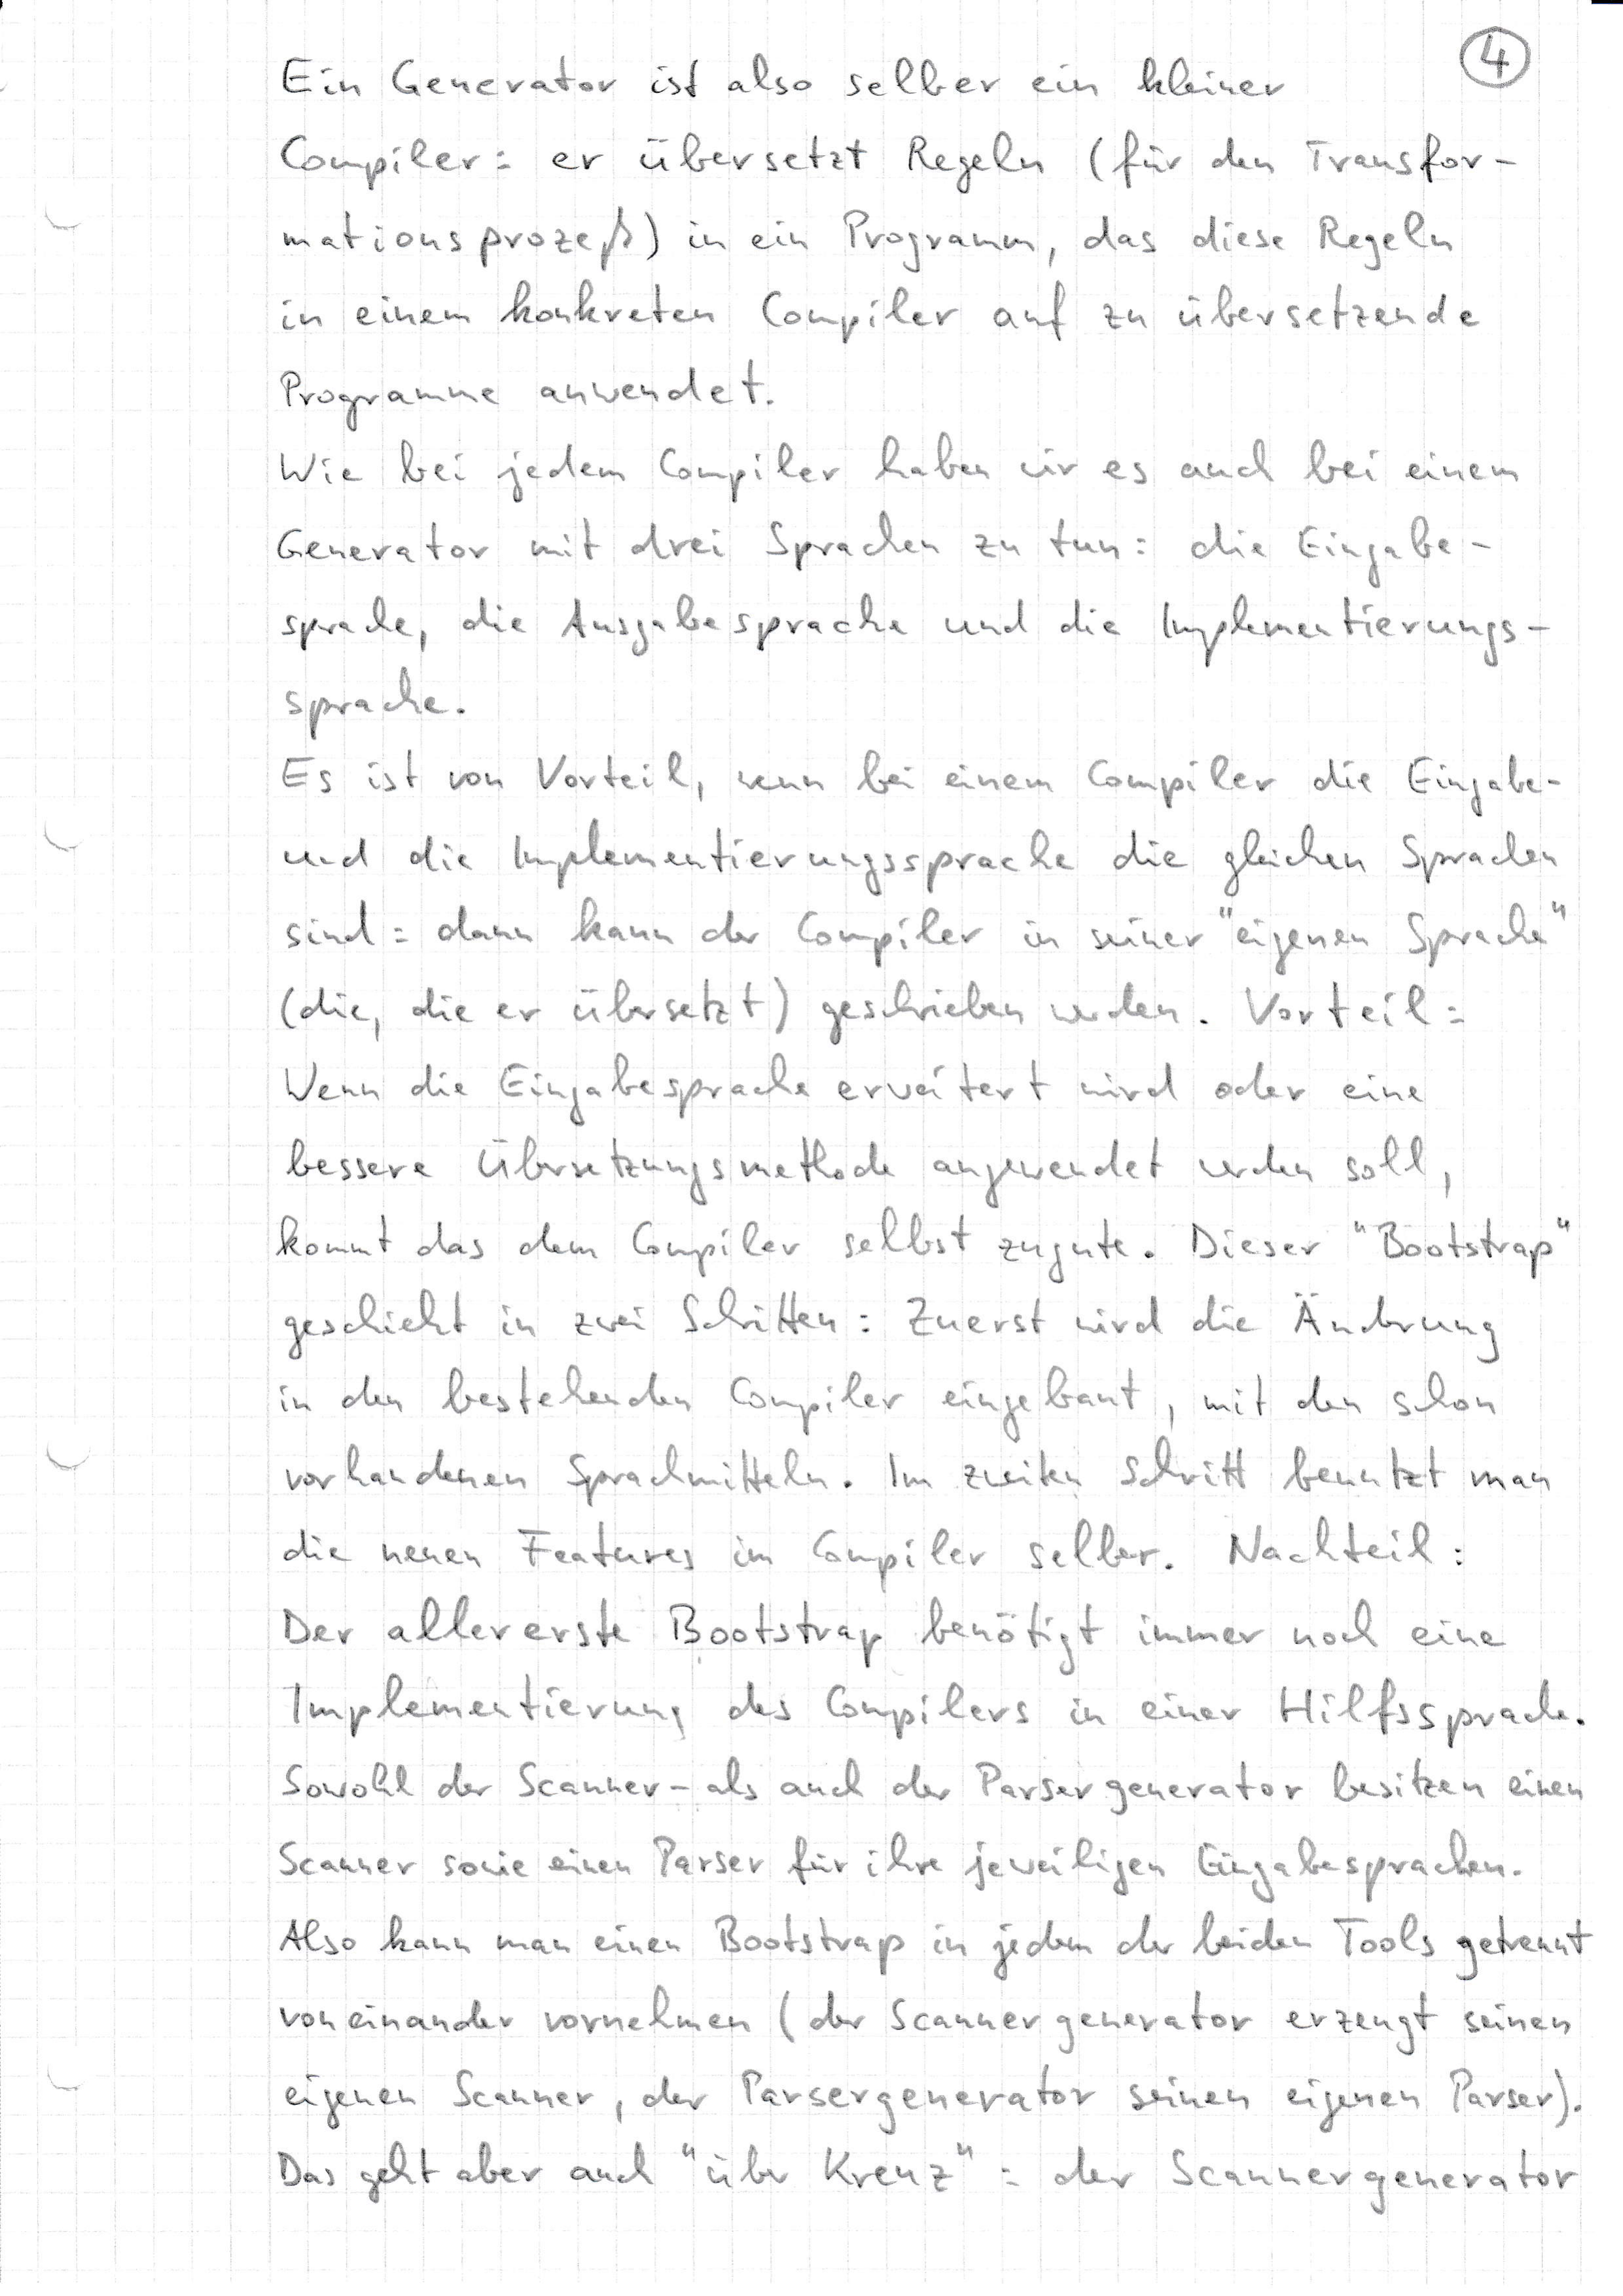 4
Ein Generator ist also selber ein kleiner
Compiler: er übersetzt Regeln (für den Transfor-
mationsprozeß) in ein Programm, das diese Regeln
in einem konkreten Compiler auf zu übersetzende
Programme anwendet.
Wie bei jedem Compiler haben wir es auch bei einem
Generator mit drei Sprachen zu tun: die Eingabe-
sprache, die Ausgabesprache und die Implementierungs-
sprache.
Es ist von Vorteil, wenn bei einem Compiler die Eingabe-
und die Implementierungssprache die gleichen Sprachen
sind: dann kann der Compiler in seiner "eigenen Sprache"
(die, die er übersetzt) geschrieben werden. Vorteil:
Wenn die Eingabesprache erweitert wird oder eine
bessere Übersetzungsmethode angewendet werden soll,
kommt das dem Compiler selbst zugute. Dieser "Bootstrap"
geschieht in zwei Schritten: Zuerst wird die Änderung
in den bestehenden Compiler eingebaut, mit den schon
vorhandenen Sprachmitteln. Im zweiten Schritt benutzt man
die neuen Features im Compiler selber. Nachteil:
Der allererste Bootstrap benötigt immer noch eine
Implementierung des Compilers in einer Hilfssprache.
Sowohl der Scanner- als auch der Parsergenerator besitzen einen
Scanner sowie einen Parser für ihre jeweiligen Eingabesprachen.
Also kann man einen Bootstrap in jedem der beiden Tools getrennt
voneinander vornehmen (der Scannergenerator erzeugt seinen
eigenen Scanner, der Parsergenerator seinen eigenen Parser).
Das geht aber auch "über Kreuz": der Scannergenerator